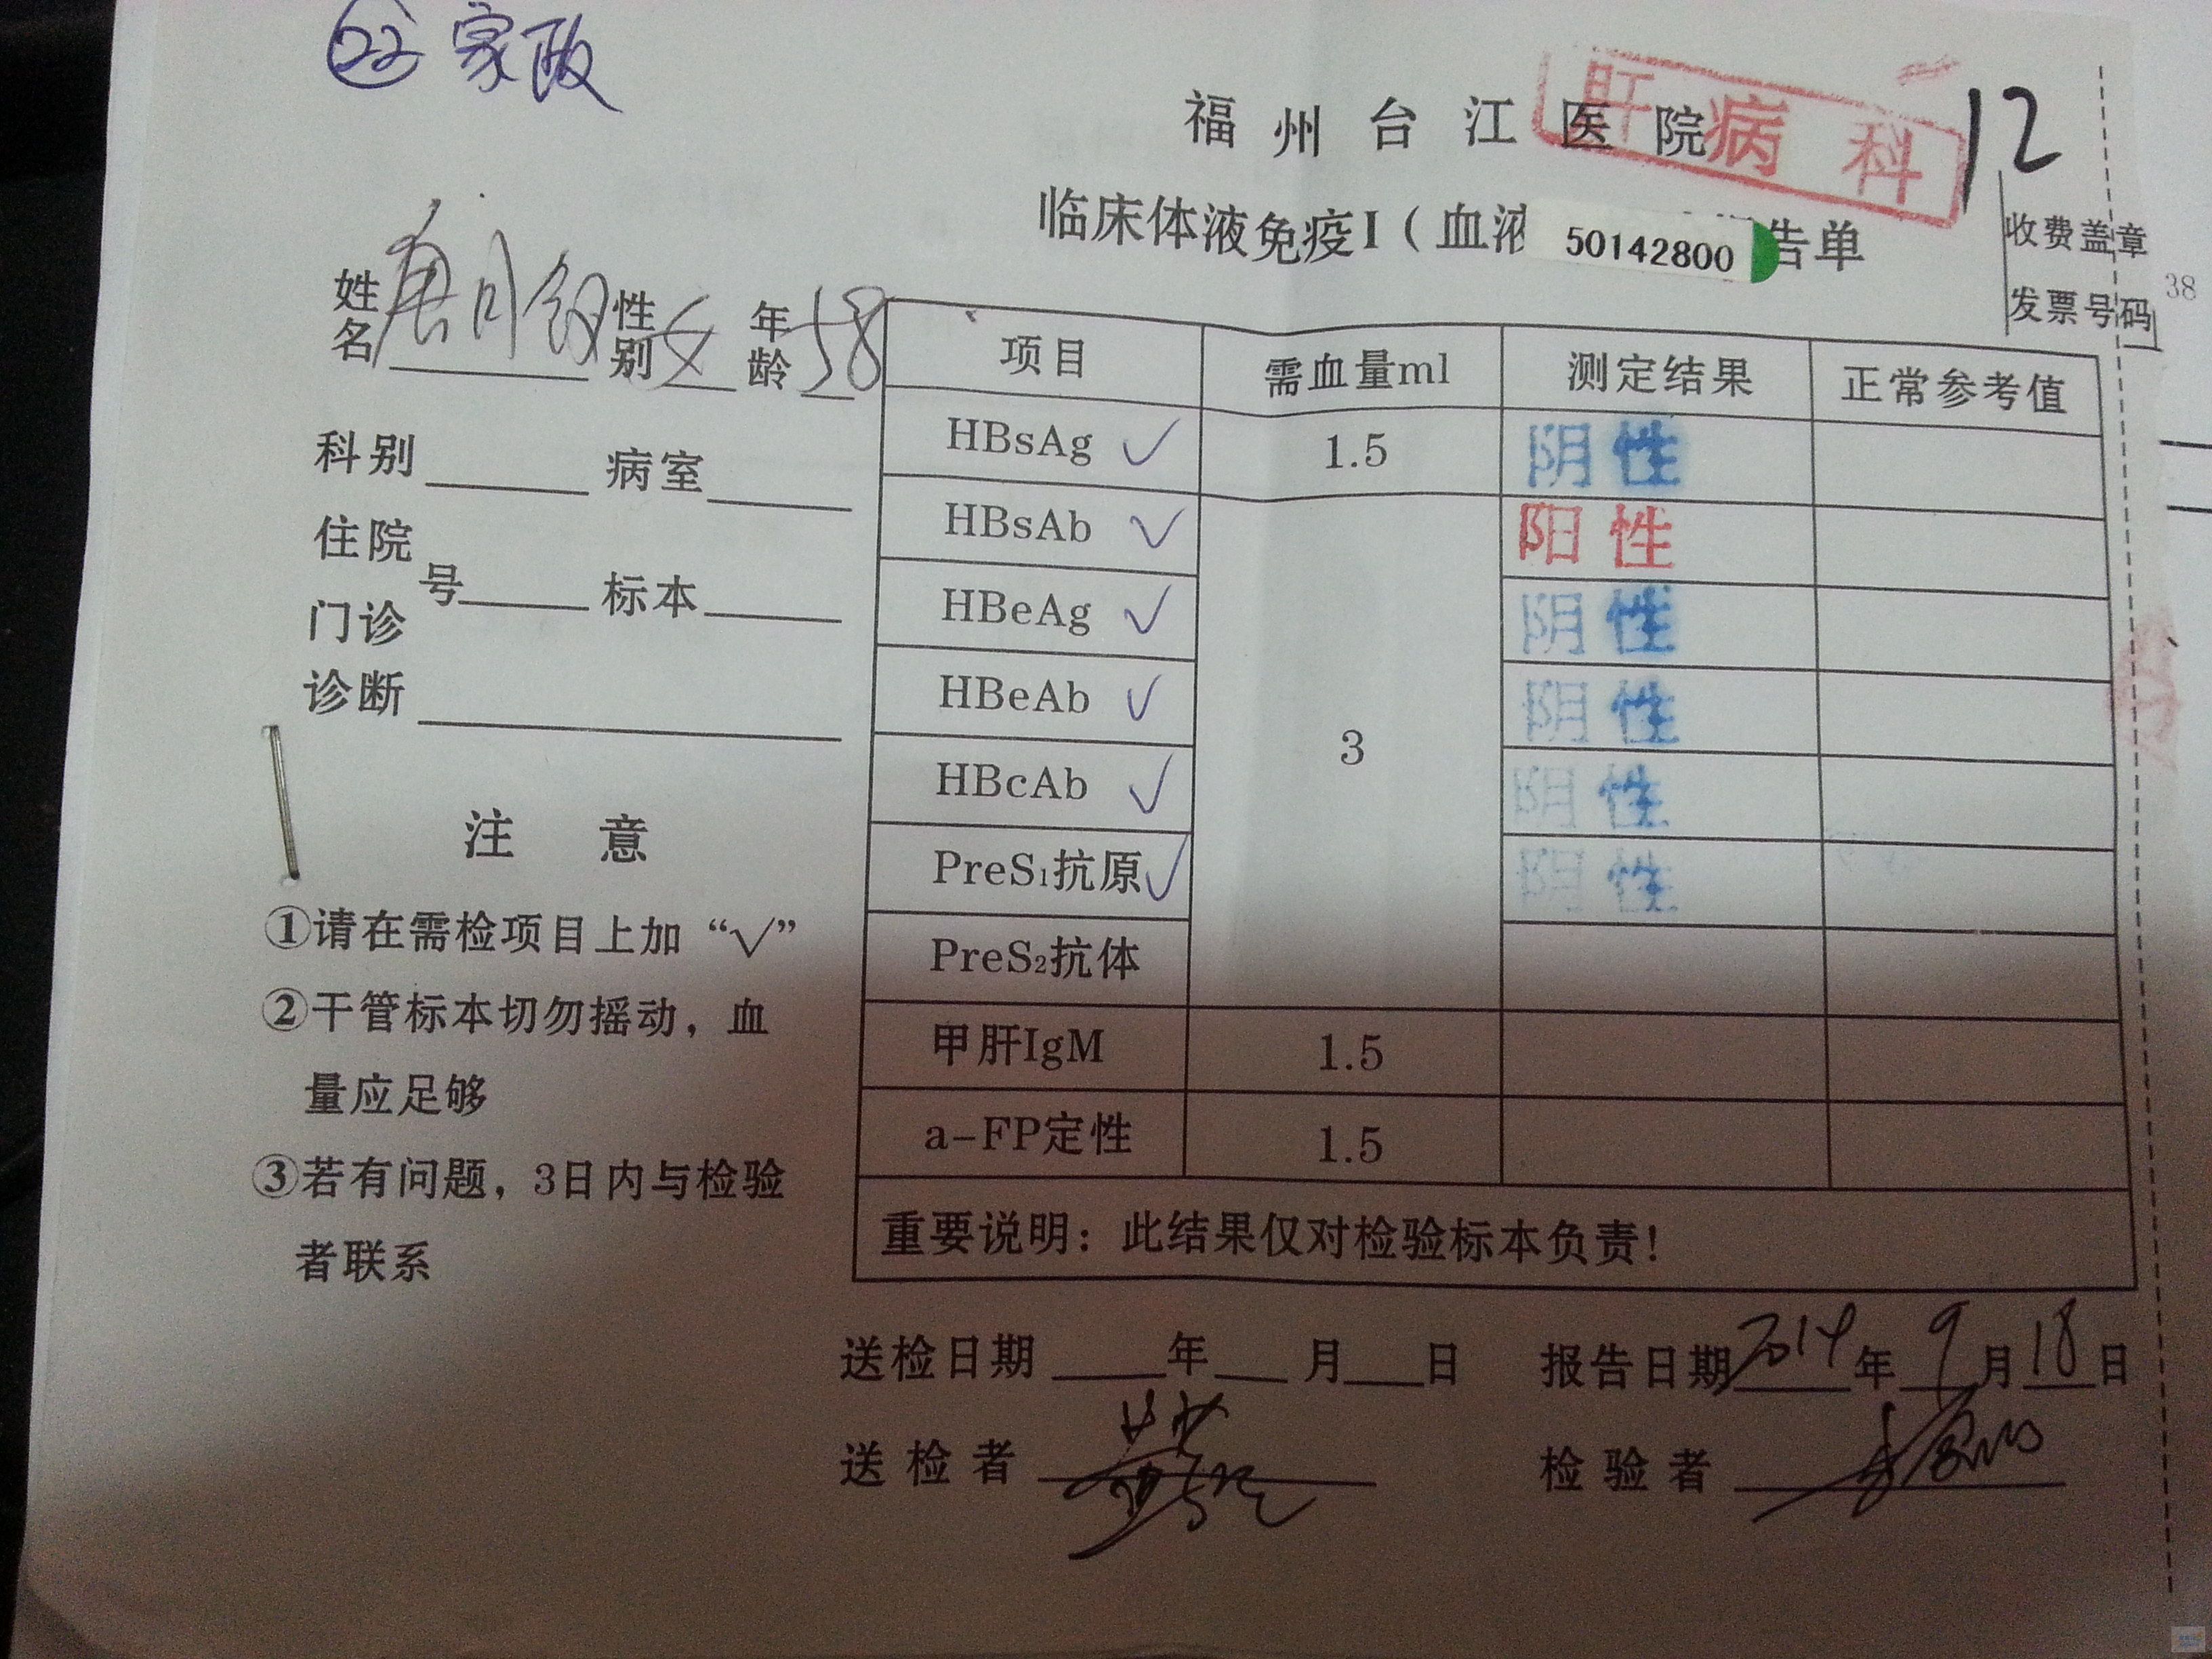 22 家政
肝病科
福州台江医院
12
临床体液免疫I（血液 50142800 告单
收费盖章
发票号码
38
姓名 性别 女 年龄 58
科别 病室
住院
门诊 号 标本
诊断
注 意
①请在需检项目上加“√”
②干管标本切勿摇动，血
量应足够
③若有问题，3日内与检验
者联系
项目 需血量ml 测定结果 正常参考值
HBsAg √ 1.5 阴性
HBsAb √ 3 阳性
HBeAg √ 阴性
HBeAb √ 阴性
HBcAb √ 阴性
PreS₁抗原 √ 阴性
PreS₂抗体
甲肝IgM 1.5
a-FP定性 1.5
重要说明：此结果仅对检验标本负责！
送检日期 年 月 日 报告日期 2014年9月18日
送检者 检验者